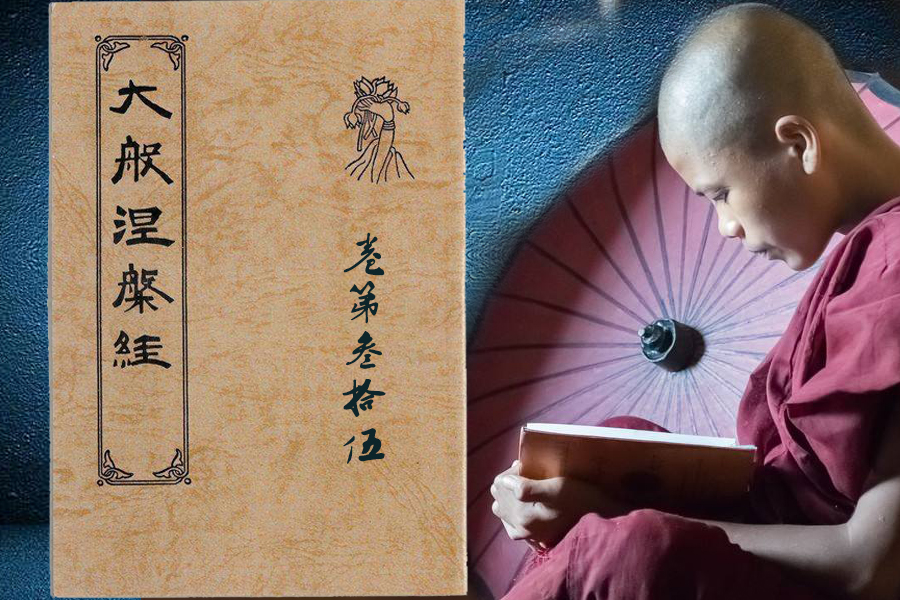 大般涅槃經
卷第叁拾伍